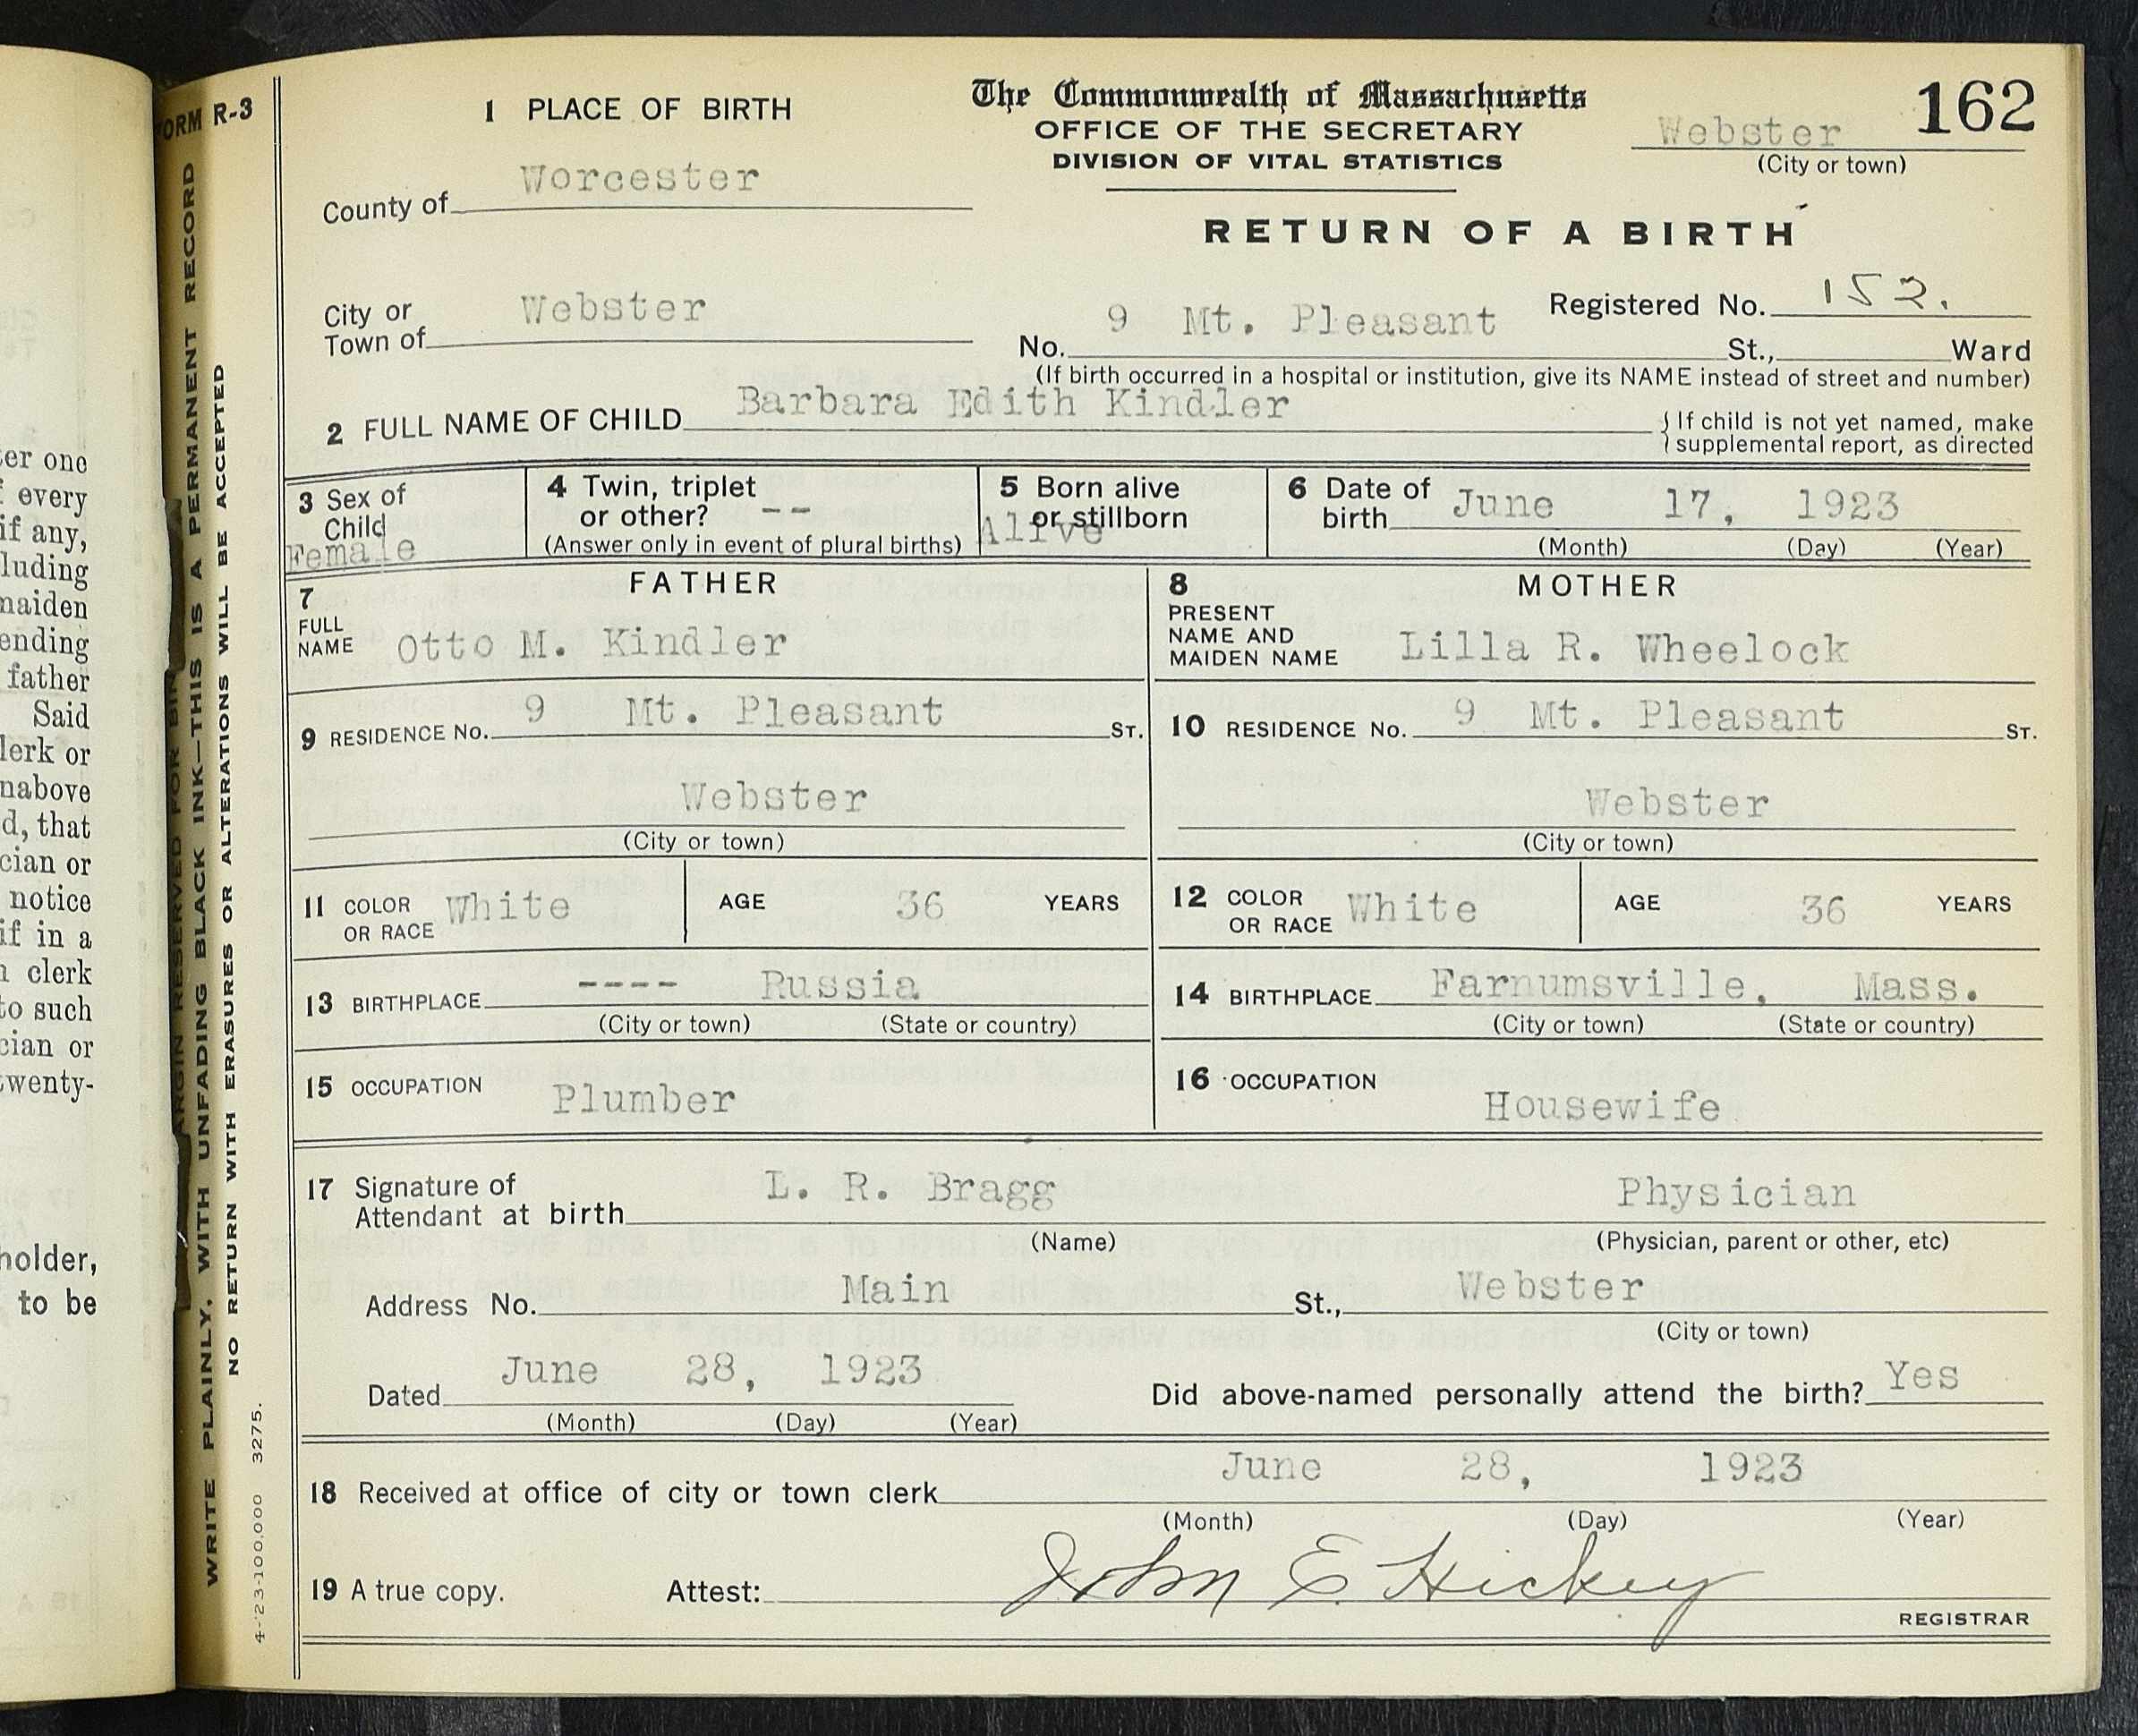 er one
every
if any,
luding
naiden
ending
father
Said
lerk or
nabove
d, that
cian or
notice
if in a
clerk
to such
cian or
twenty-
holder,
to be
FORM R-3
MARGIN RESERVED FOR BIN
WRITE PLAINLY, WITH UNFADING BLACK INK—THIS IS A PERMANENT RECORD
NO RETURN WITH ERASURES OR ALTERATIONS WILL BE ACCEPTED
4-'23-100,000 3275.
The Commonwealth of Massachusetts
OFFICE OF THE SECRETARY
DIVISION OF VITAL STATISTICS
RETURN OF A BIRTH
162
Webster
(City or town)
1 PLACE OF BIRTH
County of Worcester
City or Town of Webster
Registered No. 152.
No. 9 Mt. Pleasant St., Ward
(If birth occurred in a hospital or institution, give its NAME instead of street and number)
2 FULL NAME OF CHILD Barbara Edith Kindler
{ If child is not yet named, make
supplemental report, as directed
3 Sex of Child Female
4 Twin, triplet or other? --
(Answer only in event of plural births)
5 Born alive or stillborn Alive
6 Date of birth June 17, 1923
(Month) (Day) (Year)
FATHER
7 FULL NAME Otto M. Kindler
MOTHER
8 PRESENT NAME AND MAIDEN NAME Lilla R. Wheelock
9 RESIDENCE No. 9 Mt. Pleasant ST.
Webster
(City or town)
10 RESIDENCE No. 9 Mt. Pleasant ST.
Webster
(City or town)
11 COLOR OR RACE White AGE 36 YEARS
12 COLOR OR RACE White AGE 36 YEARS
13 BIRTHPLACE ---- Russia
(City or town) (State or country)
14 BIRTHPLACE Farnumsville, Mass.
(City or town) (State or country)
15 OCCUPATION Plumber
16 OCCUPATION Housewife
17 Signature of Attendant at birth L. R. Bragg Physician
(Name) (Physician, parent or other, etc)
Address No. Main St., Webster
(City or town)
Dated June 28, 1923
(Month) (Day) (Year)
Did above-named personally attend the birth? Yes
18 Received at office of city or town clerk June 28, 1923
(Month) (Day) (Year)
19 A true copy. Attest: John E. Hickey
REGISTRAR